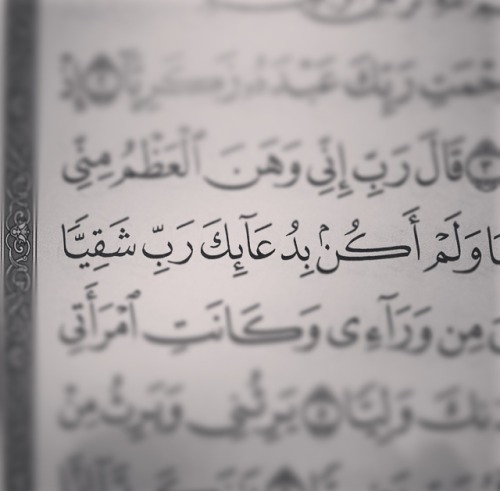 رَحْمَتِ رَبِّكَ عَبْدَهُۥ زَكَرِيَّآ ٢ إِذْ
٣ قَالَ رَبِّ إِنِّي وَهَنَ ٱلْعَظْمُ مِنِّي
وَلَمْ أَكُنۢ بِدُعَآئِكَ رَبِّ شَقِيًّا
مِن وَرَآءِي وَكَانَتِ ٱمْرَأَتِي
وَلِيًّا ٥ يَرِثُنِي وَيَرِثُ مِنْ